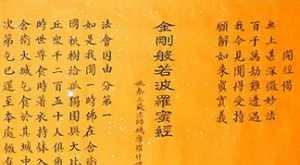 開經偈
無上甚深微妙法
百千萬劫難遭遇
我今見聞得受持
願解如來真實義
金剛般若波羅蜜經
姚秦三藏法師鳩摩羅什譯
法會因由分第一
如是我聞一時佛在舍衛
國祇樹給孤獨園與大比
丘眾千二百五十人俱爾
時世尊食時著衣持鉢入
舍衛大城乞食於其城中
次第乞已還至本處飯食